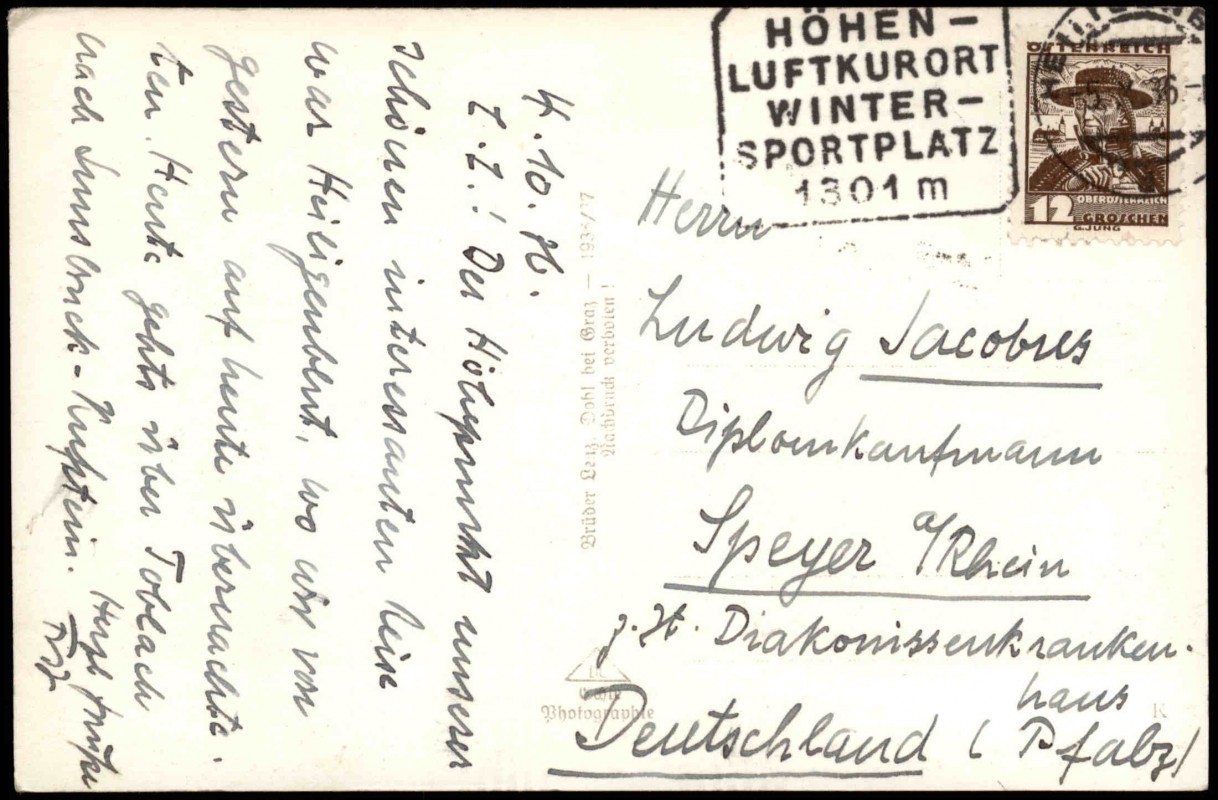 4.10.36.
L.L.! Der Höhepunkt unserer
schönen interessanten Reise
war Heiligenblut, wo wir von
gestern auf heute übernachte-
ten. Heute gehts über Toblach
nach Innsbruck-Kufstein.
Herzl.
Brüder Lenz, Dobl bei Graz — 193
Nachdruck verboten!
Echte
Photographie
HÖHEN-
LUFTKURORT
WINTER-
SPORTPLATZ
1301 m
ÖSTERREICH
12
OBERÖSTERREICH
GROSCHEN
G.JUNG
Herrn
Ludwig Jacobus
Diplomkaufmann
Speyer a/Rhein
z. Zt. Diakonissenkranken-
haus
Deutschland (Pfalz)
K